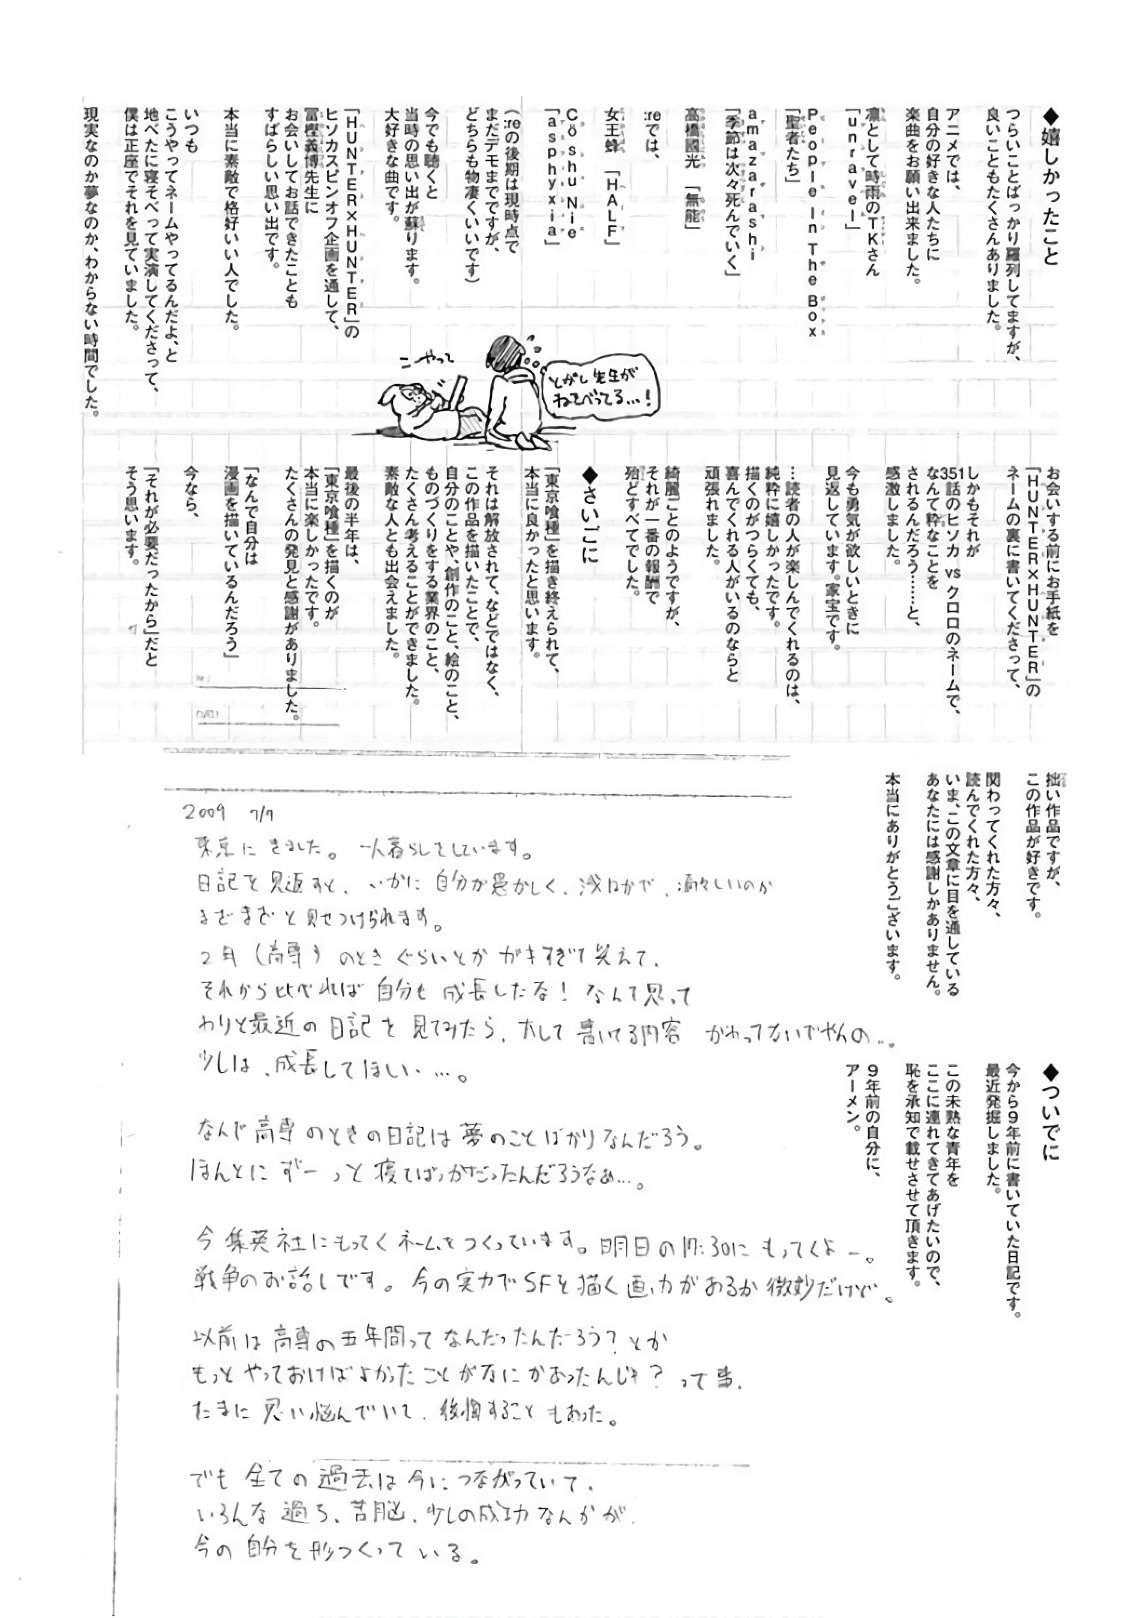 ◆嬉しかったこと
つらいことばっかり羅列してますが、
良いこともたくさんありました。
アニメでは、
自分の好きな人たちに
楽曲をお願い出来ました。
凛として時雨のTKさん
「unravel」
People In The Box
「聖者たち」
amazarashi
「季節は次々死んでいく」
高橋國光 「無能」
:reでは、
女王蜂 「HALF」
Cö shu Nie
「asphyxia」
(:reの後期は現時点で
まだデモまでですが、
どちらも物凄くいいです)
今でも聴くと
当時の思い出が蘇ります。
大好きな曲です。
「HUNTER×HUNTER」の
ヒソカスピンオフ企画を通して、
冨樫義博先生に
お会いしてお話できたことも
すばらしい思い出です。
本当に素敵で格好いい人でした。
いつも
こうやってネームやってるんだよ、と
地べたに寝そべって実演してくださって、
僕は正座でそれを見ていました。
現実なのか夢なのか、わからない時間でした。
こやって
とがし先生が
ねそべってる…!
お会いする前にお手紙を
「HUNTER×HUNTER」の
ネームの裏に書いてくださって、
しかもそれが
351話のヒソカ vs クロロのネームで、
なんて粋なことを
されるんだろう……と、
感激しました。
今も勇気が欲しいときに
見返しています。家宝です。
…読者の人が楽しんでくれるのは、
純粋に嬉しかったです。
描くのがつらくても、
喜んでくれる人がいるのならと
頑張れました。
綺麗ごとのようですが、
それが一番の報酬で
殆どすべてでした。
◆さいごに
「東京喰種」を描き終えられて、
本当に良かったと思います。
それは解放されて、などではなく、
この作品を描いたことで、
自分のことや、創作のこと、絵のこと、
ものづくりをする業界のこと、
たくさん考えることができました。
素敵な人とも出会えました。
最後の半年は、
「東京喰種」を描くのが
本当に楽しかったです。
たくさんの発見と感謝がありました。
「なんで自分は
漫画を描いているんだろう」
今なら、
「それが必要だったから」だと
そう思います。
拙い作品ですが、
この作品が好きです。
関わってくれた方々、
読んでくれた方々、
いま、この文章に目を通している
あなたには感謝しかありません。
本当にありがとうございます。
◆ついでに
今から9年前に書いていた日記です。
最近発掘しました。
この未熟な青年を
ここに連れてきてあげたいので、
恥を承知で載せさせて頂きます。
9年前の自分に、
アーメン。
2009 7/7
東京にきました。一人暮らしをしています。
日記を見返すと、いかに自分が愚かしく、浅はかで、瀬々しいのか
まざまざと見せつけられます。
2月(高専)のときぐらいとかガキすぎて笑えて、
それから比べれば自分も成長したな!なんて思って
わりと最近の日記を見てみたら、大して書いてる内容かわってないでやんの…。
少しは、成長してほしい…。
なんで高専のときの日記は夢のことばかりなんだろう。
ほんとにずーっと寝てばっかだったんだろうなぁ…。
今集英社にもってくネームをつくっています。明日の17:30にもってくよー。
戦争のお話しです。今の実力でSFを描く画力があるか微妙だけど。
以前は高専の五年間ってなんだったんだろう?とか
もっとやっておけばよかったことがなにかあったんじゃ?って事、
たまに思い悩んでいて、後悔することもあった。
でも全ての過去は今につながっていて、
いろんな過ち、苦脳、少しの成功なんかが、
今の自分を形つくっている。